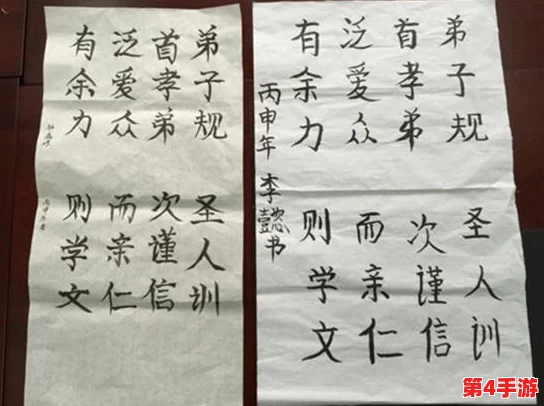 弟子规 圣人训
首孝弟 次谨信
泛爱众 而亲仁
有余力 则学文
弟子规 圣人训
首孝弟 次谨信
泛爱众 而亲仁
有余力 则学文
丙申年 李懿书
第4手游